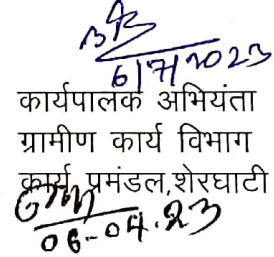 6/7/2023
कार्यपालक अभियंता
ग्रामीण कार्य विभाग
कार्य प्रमंडल,शेरघाटी
06-07.23